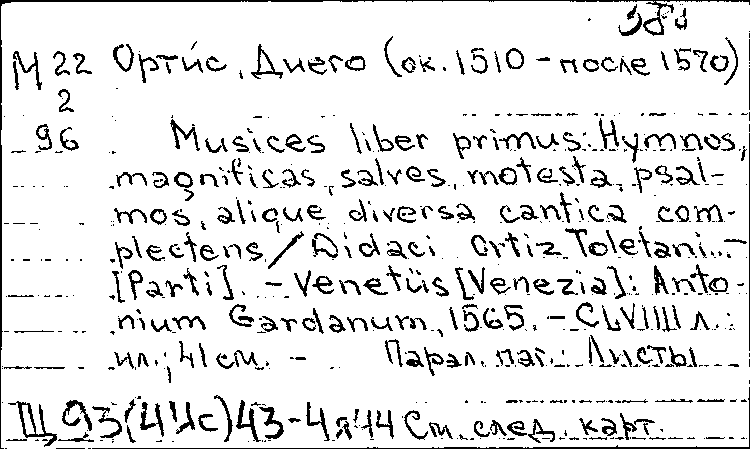 М 22 Ортис, Диего (ок. 1510 - после 1570)
2
96 Musices liber primus: Hymnos,
magnificas, salves, motesta, psal-
mos, alique diversa cantica com-
plectens / Didaci Ortiz Toletani. -
[Parti]. - Venetüs [Venezia]: Anto-
nium Gardanum, 1565. - CLVIIII л.:
ил.; 41 см. - Парал. паг.: Листы
См. след. карт.